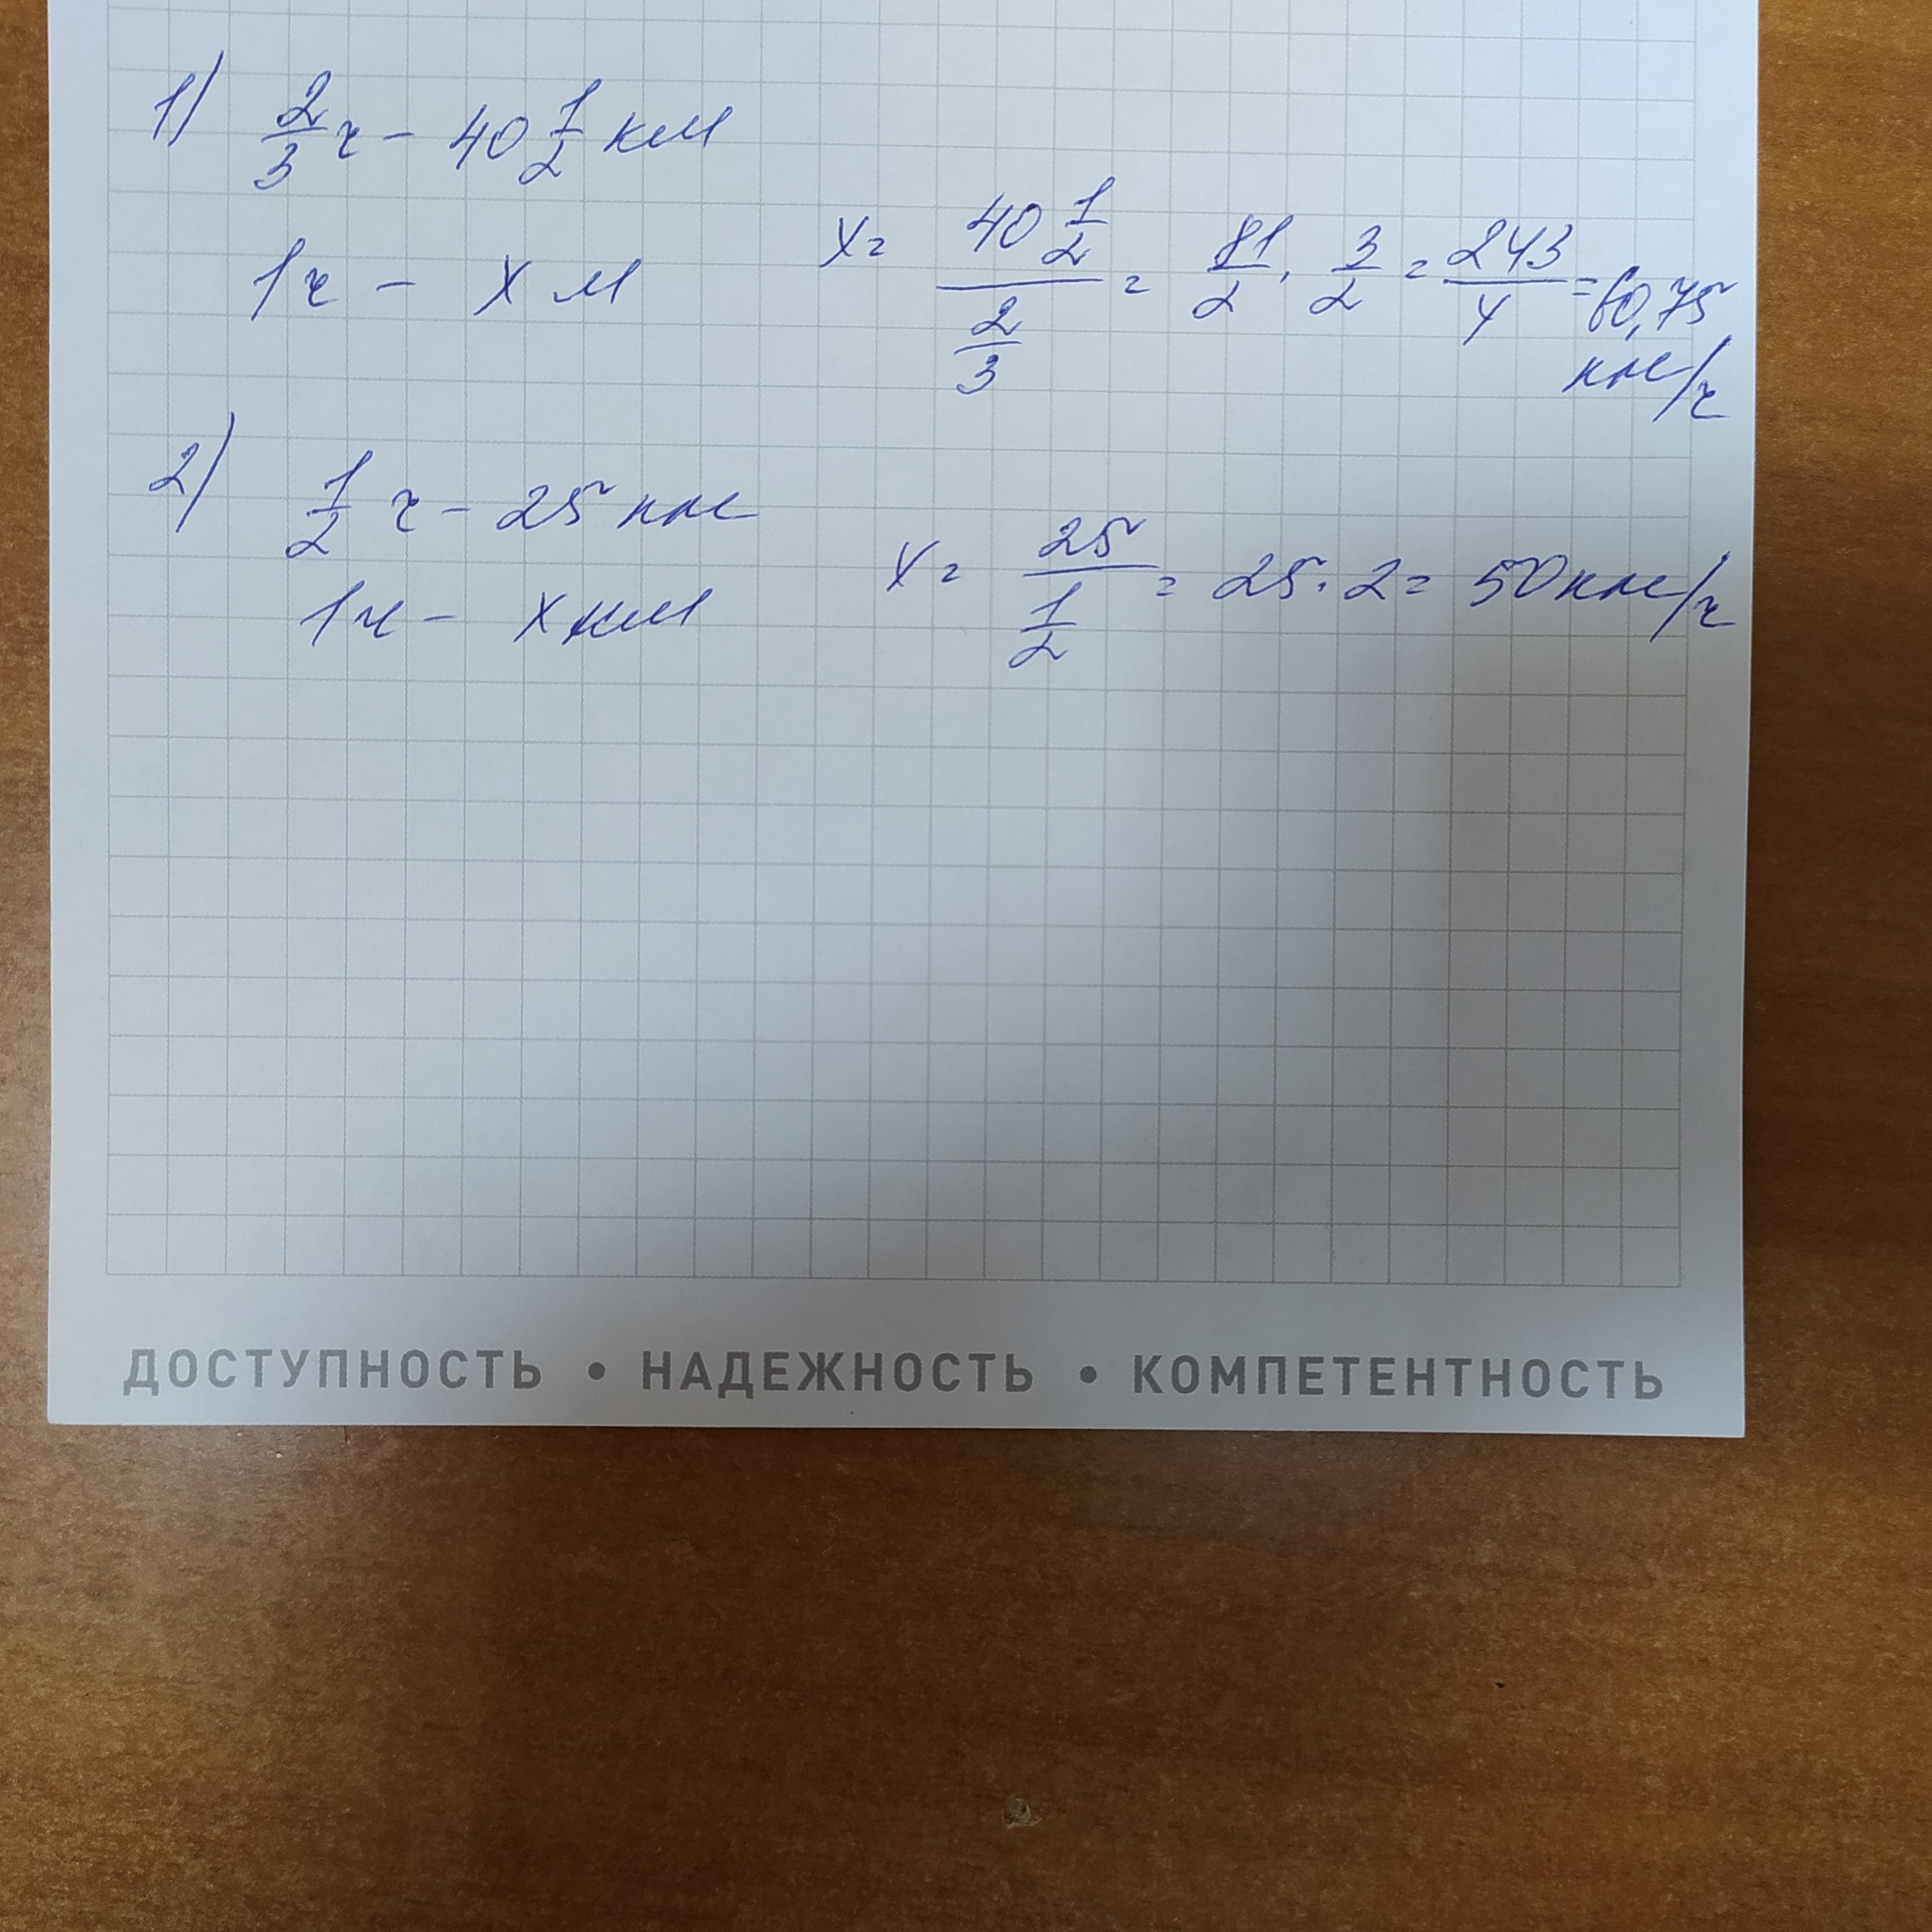 1) 2/3 ч - 40 1/2 км
1ч - х м
х = 40 1/2 / 2/3 = 81/2 · 3/2 = 243/4 = 60,75
км/ч
2) 1/2 ч - 25 км
1ч - х км
х = 25 / 1/2 = 25 · 2 = 50 км/ч
ДОСТУПНОСТЬ • НАДЕЖНОСТЬ • КОМПЕТЕНТНОСТЬ